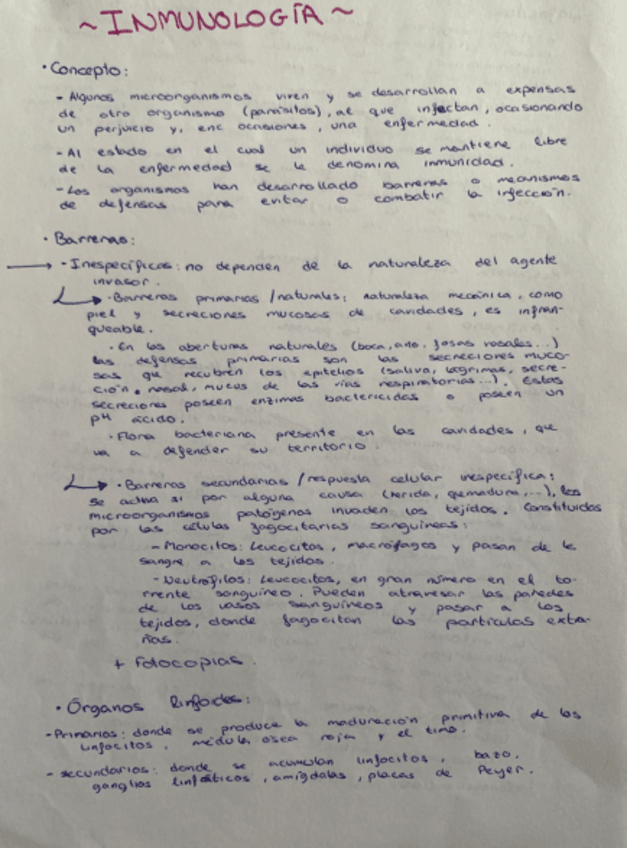 ~ INMUNOLOGÍA ~
· Concepto:
- Algunos microorganismos viven y se desarrollan a expensas
de otro organismo (parásitos), al que infectan, ocasionando
un perjuicio y, enc ocasiones, una enfermedad.
- Al estado en el cual un individuo se mantiene libre
de la enfermedad se le denomina inmunidad.
- Los organismos han desarrollado barreras o mecanismos
de defensas para evitar o combatir la infección.
· Barreras:
→ · Inespecíficas: no dependen de la naturaleza del agente
invasor.
↳ · Barreras primarias / naturales: naturaleza mecánica, como
piel y secreciones mucosas de cavidades, es infran-
queable.
· En las aberturas naturales (boca, ano, fosas nasales...)
las defensas primarias son las secreciones muco-
sas que recubren los epitelios (saliva, lágrimas, secre-
ción nasal, mucus de las vías respiratorias...). Estas
secreciones poseen enzimas bactericidas o poseen un
pH ácido.
· Flora bacteriana presente en las cavidades, que
va a defender su territorio.
↳ · Barreras secundarias / respuesta celular inespecífica:
se activa si por alguna causa (herida, quemadura, ...), los
microorganismos patógenos invaden los tejidos. Constituidas
por las células fagocitarias sanguíneas:
- Monocitos: leucocitos, macrófagos y pasan de la
sangre a los tejidos.
- Neutrófilos: leucocitos, en gran número en el to-
rrente sanguíneo. Pueden atravesar las paredes
de los vasos sanguíneos y pasar a los
tejidos, donde fagocitan las partículas extra-
ñas.
+ fotocopias.
· Órganos linfoides:
- Primarios: donde se produce la maduración primitiva de los
linfocitos. médula ósea roja y el timo.
- secundarios: donde se acumulan linfocitos, bazo,
ganglios linfáticos, amígdalas, placas de Peyer.